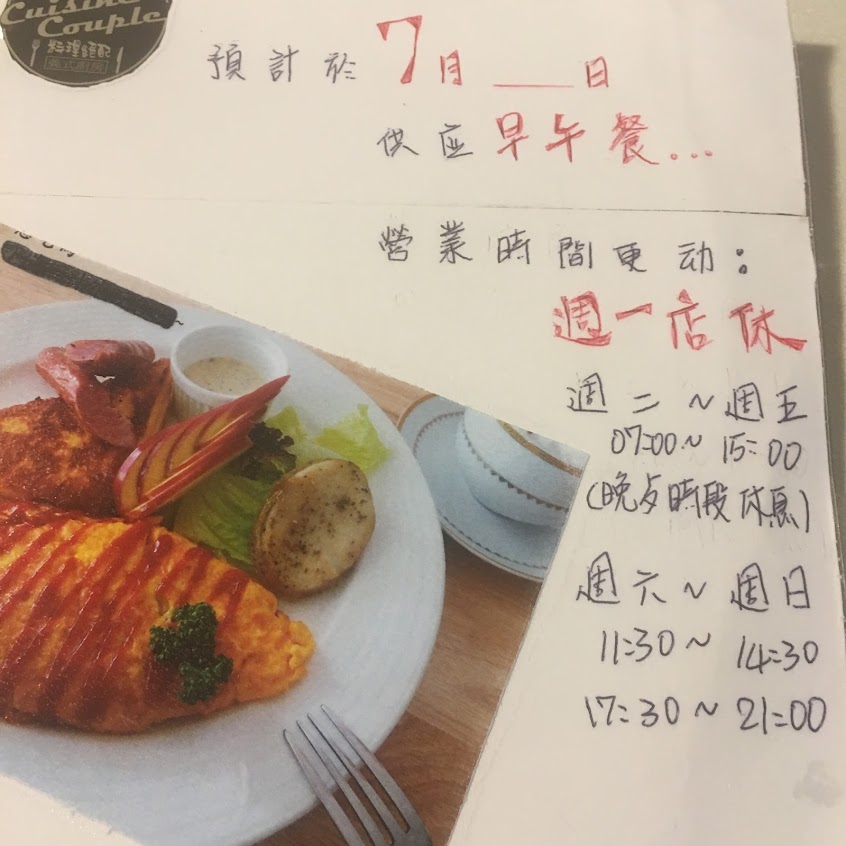 Cuisine
Couple
料理種配
義式廚房
預計於 7月 ___日
供应早午餐...
營業時間更动:
週一店休
週二~週五
07:00~15:00
(晚歺時段休息)
週六~週日
11:30~14:30
17:30~21:00